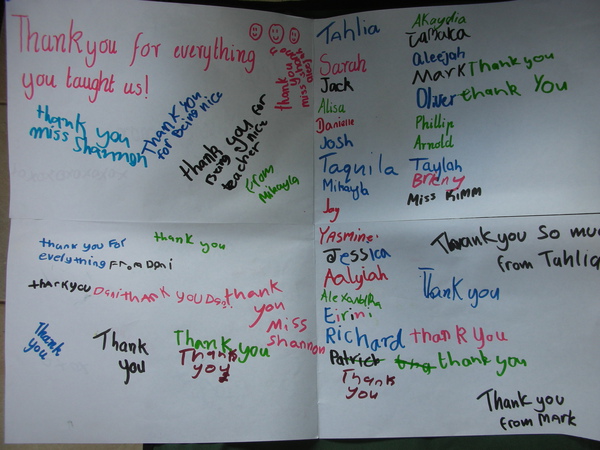 Thankyou for everything
you taught us!
thank you
miss Shannon
Thank you
for Being nice
thank you for
teacher nice
From
Mikayla
thank
you
miss
Tahlia
Sarah
Jack
Alisa
Danielle
Josh
Taquila
Mikayla
Jay
Yasmine
Jessica
Aalyiah
Eirini
Richard thank you
Patrick thank you
Thanks
you
AKaydia
Tamaka
aleejah
Mark Thank you
Oliver thank You
Phillip
Arnold
Taylah
Briony
Miss Kimm
Thank you So mu
from Tahlia
Thank you
Thank you
from Mark
thank you For
everything From Dani
thank you
thank you Dani thank you Dani
thank
you
Miss
Shannon
Thank
you
Thank
you
Thank you
Thanks
you